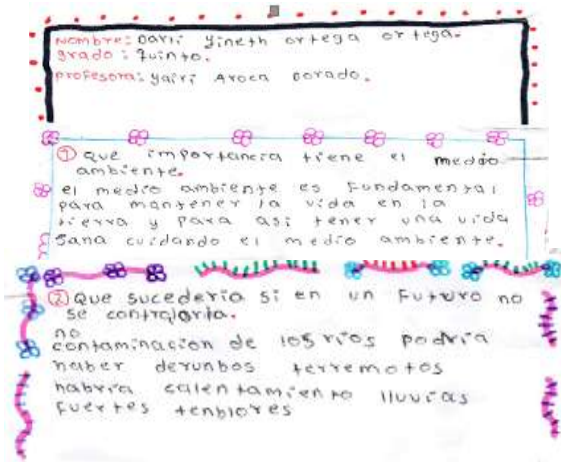 Nombre: Darli yineth ortega ortega.
grado: quinto.
profesora: yairi Aroca Dorado.
① que importancia tiene el medio
ambiente.
el medio ambiente es fundamental
para mantener la vida en la
tierra y para asi tener una vida
sana cuidando el medio ambiente.
② Que sucederia si en un futuro no
se contralarla.
no
contaminacion de los rios podria
haber derunbos terremotos
habria calentamiento lluvias
fuertes tenblores